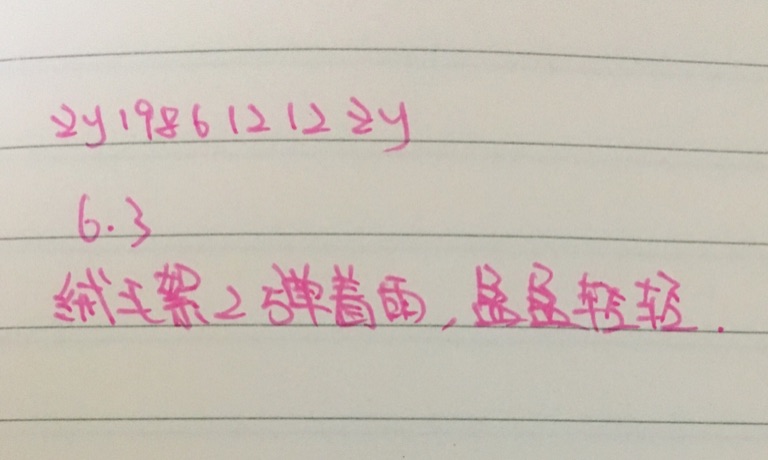 zy19861212zy
6.3
绒毛絮2弹着雨,盈盈轻轻.